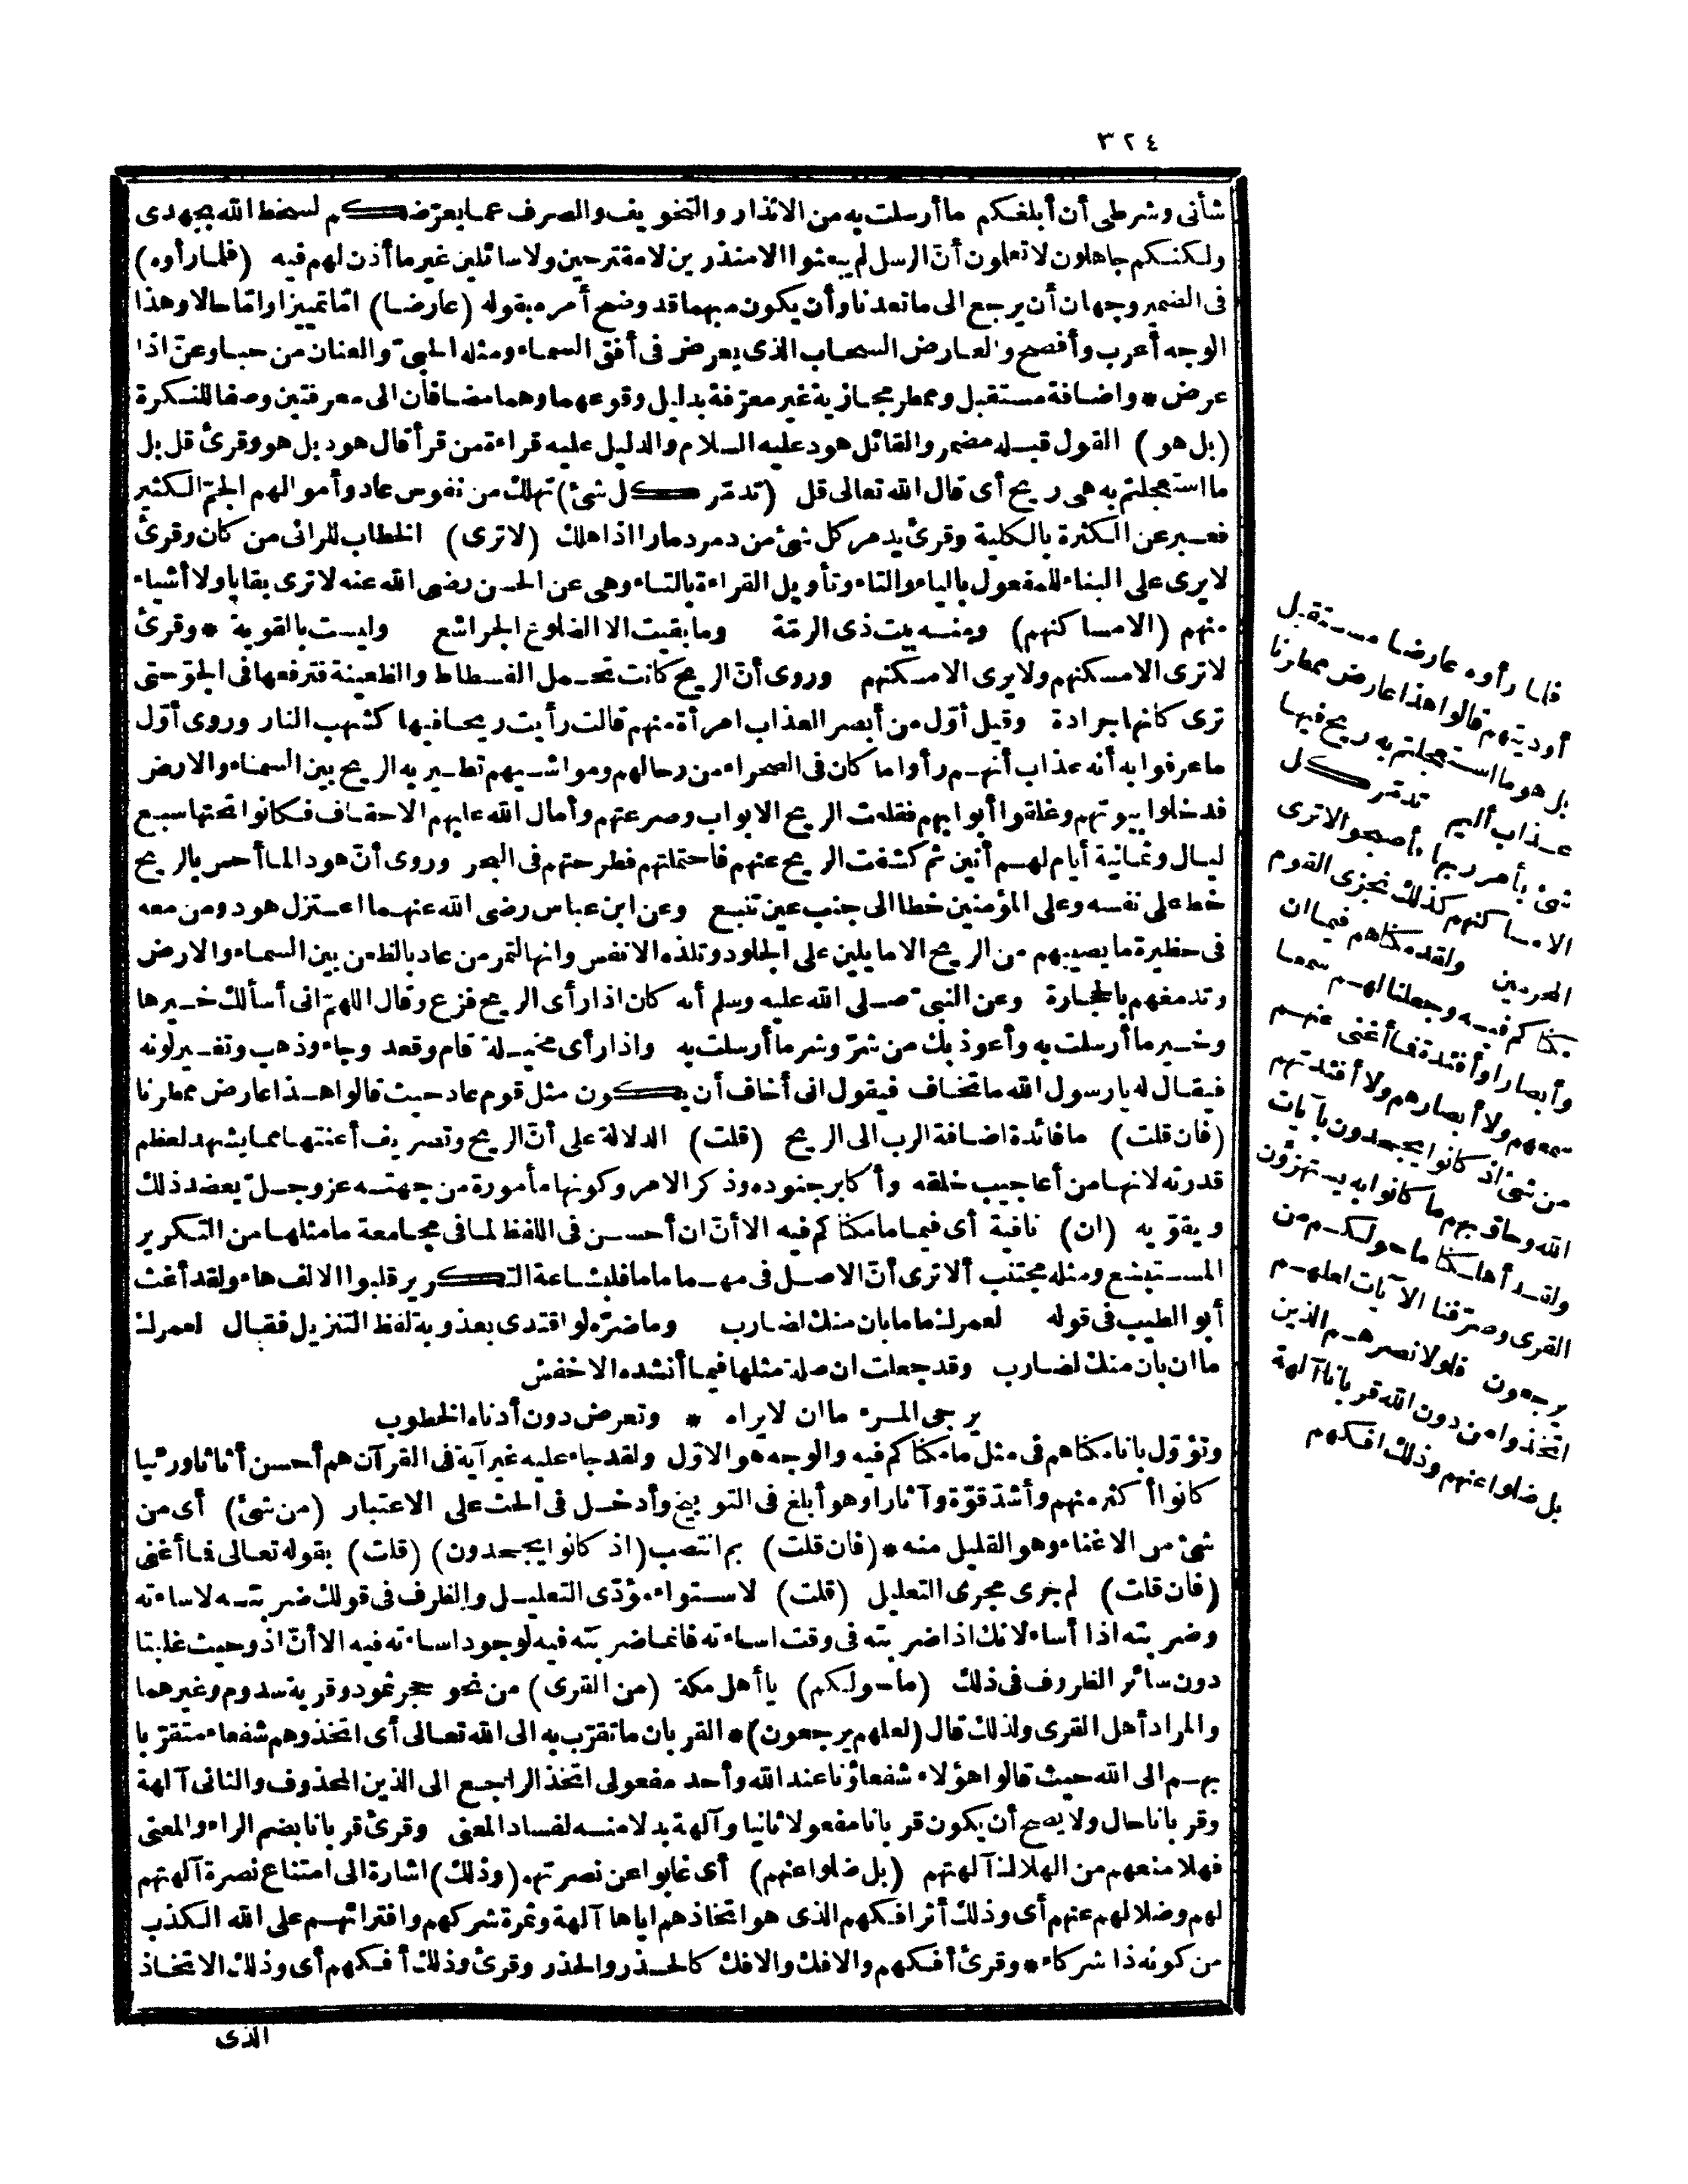 ٣٢٤
شأنى وشرطى أن أبلغكم ما أرسلت به من الانذار والتخويف والصرف عما يعرّضكم لسخط الله بجهدى
ولكنكم جاهلون لا تعلمون أنّ الرسل لم يبعثوا الا منذرين لا مقترحين ولا سائلين غير ما أذن لهم فيه (فلما رأوه)
فى الضمير وجهان أن يرجع الى ما تعدنا وأن يكون مبهما قد وضح أمره بقوله (عارضا) امّا تمييزا وامّا حالا وهذا
الوجه أعرب وأفصح والعارض السحاب الذى يعرض فى أفق السماء ومثله الحبىّ والعنان من حبا وعنّ اذا
عرض * واضافة مستقبل وممطر مجازية غير معرّفة بدليل وقوعهما وهما مضافان الى معرفتين وصفا للنكرة
(بل هو) القول قبله مضمر والقائل هود عليه السلام والدليل عليه قراءة من قرأ قال هود بل هو وقرئ قل بل
ما استعجلتم به هى ريح أى قال الله تعالى قل (تدمّر كل شئ) تهلك من نفوس عاد وأموالهم الجمّ الكثير
فعبر عن الكثرة بالكلية وقرئ يدمر كل شئ من دمر دمارا اذا هلك (لا ترى) الخطاب للرائى من كان وقرئ
لا يرى على البناء للمفعول بالياء والتاء وتأويل القراءة بالتاء وهى عن الحسن رضى الله عنه لا ترى بقايا ولا أشياء
منهم (الا مساكنهم) ومنه بيت ذى الرمّة وما بقيت الا الضلوع الجراشع وليست بالقوية * وقرئ
لا ترى الا مسكنهم ولا يرى الا مسكنهم وروى أنّ الريح كانت تحمل الفسطاط والظعينة فترفعها فى الجوّ حتى
ترى كانها جرادة وقيل أوّل من أبصر العذاب امرأة منهم قالت رأيت ريحا فيها كشهب النار وروى أوّل
ما عرفوا به أنه عذاب أنهم رأوا ما كان فى الصحراء من رحالهم ومواشيهم تطير به الريح بين السماء والارض
فدخلوا بيوتهم وغلقوا أبوابهم فقلعت الريح الابواب وصرعتهم وأمال الله عليهم الاحقاف فكانوا تحتها سبع
ليال وثمانية أيام لهم أنين ثم كشفت الريح عنهم فاحتملتهم فطرحتهم فى البحر وروى أنّ هودا لما أحس بالريح
خط على نفسه وعلى المؤمنين خطا الى جنب عين تنبع وعن ابن عباس رضى الله عنهما اعتزل هود ومن معه
فى حظيرة ما يصيبهم من الريح الا ما يلين على الجلود وتلذه الانفس وانها لتمر من عاد بالظعن بين السماء والارض
وتدمغهم بالحجارة وعن النبىّ صلى الله عليه وسلم أنه كان اذا رأى الريح فزع وقال اللهمّ انى أسألك خيرها
وخير ما أرسلت به وأعوذ بك من شرّ وشر ما أرسلت به واذا رأى مخيلة قام وقعد وجاء وذهب وتغير لونه
فيقال له يا رسول الله ما تخاف فيقول انى أخاف أن يكون مثل قوم عاد حيث قالوا هذا عارض ممطرنا
(فان قلت) ما فائدة اضافة الرب الى الريح (قلت) الدلالة على أنّ الريح وتصريف أعنتها مما يشهد لعظم
قدرته لانها من أعاجيب خلقه وأكابر جنوده وذكر الامر وكونها مأمورة من جهته عز وجلّ يعضد ذلك
ويقوّيه (ان) نافية أى فيما ما مكنا كم فيه الا أنّ ان أحسن فى اللفظ لما فى مجامعة ما مثلها من التكرير
المستبشع ومثله مجتنب ألا ترى أنّ الاصل فى مهما ما ما فلبشاعة التكرير قلبوا الالف هاء ولقد أغث
أبو الطيب فى قوله لعمرك ما ما بان منك لضارب وما ضرّه لو اقتدى بعذوبة لفظ التنزيل فقال لعمرك
ما ان بان منك لضارب وقد جعلت ان صلة مثلها فيما أنشده الاخفش
يرجى المرء ما ان لا يراه * وتعرض دون أدناه الخطوب
وتؤوّل بانا مكناهم فى مثل ما مكنا كم فيه والوجه هو الاوّل ولقد جاء عليه غير آية فى القرآن هم أحسن أثاثا ورئيا
كانوا أكثر منهم وأشدّ قوّة وآثارا وهو أبلغ فى التوبيخ وأدخل فى الحث على الاعتبار (من شئ) أى من
شئ من الاغناء وهو القليل منه * (فان قلت) بم انتصب (اذ كانوا يجحدون) (قلت) بقوله تعالى فما أغنى
(فان قلت) لم جرى مجرى التعليل (قلت) لاستواء مؤدّى التعليل والظرف فى قولك ضربته لاساءته
وضربته اذا أساء لانك اذا ضربته فى وقت اساءته فانما ضربته فيه لوجود اساءته فيه الا أنّ اذ وحيث غلبتا
دون سائر الظروف فى ذلك (ما حولكم) يا أهل مكة (من القرى) من نحو حجر ثمود وقرية سدوم وغيرهما
والمراد أهل القرى ولذلك قال (لعلهم يرجعون) * القربان ما تقرّب به الى الله تعالى أى اتخذوهم شفعاء متقرّبا
بهم الى الله حيث قالوا هؤلاء شفعاؤنا عند الله وأحد مفعولى اتخذ الراجع الى الذين المحذوف والثانى آلهة
وقربانا حال ولا يصح أن يكون قربانا مفعولا ثانيا وآلهة بدلا منه لفساد المعنى وقرئ قربانا بضم الراء والمعنى
فهلا منعهم من الهلاك آلهتهم (بل ضلوا عنهم) أى غابوا عن نصرتهم (وذلك) اشارة الى امتناع نصرة آلهتهم
لهم وضلالهم عنهم أى وذلك أثر افكهم الذى هو اتخاذهم اياها آلهة وثمرة شركهم وافترائهم على الله الكذب
من كونه ذا شركاء * وقرئ أفكهم والافك والافك كالحذر والحذر وقرئ وذلك أفكهم أى وذلك الاتخاذ
الذى
فلما رأوه عارضا مستقبل
أوديتهم قالوا هذا عارض ممطرنا
بل هو ما استعجلتم به ريح فيها
عذاب أليم تدمّر كل
شئ بأمر ربها فأصبحوا لا ترى
الا مساكنهم كذلك نجزى القوم
المجرمين ولقد مكناهم فيما ان
مكنا كم فيه وجعلنا لهم سمعا
وأبصارا وأفئدة فما أغنى عنهم
سمعهم ولا أبصارهم ولا أفئدتهم
من شئ اذ كانوا يجحدون بآيات
الله وحاق بهم ما كانوا به يستهزؤن
ولقد أهلكنا ما حولكم من
القرى وصرّفنا الآيات لعلهم
يرجعون فلولا نصرهم الذين
اتخذوا من دون الله قربانا آلهة
بل ضلوا عنهم وذلك افكهم